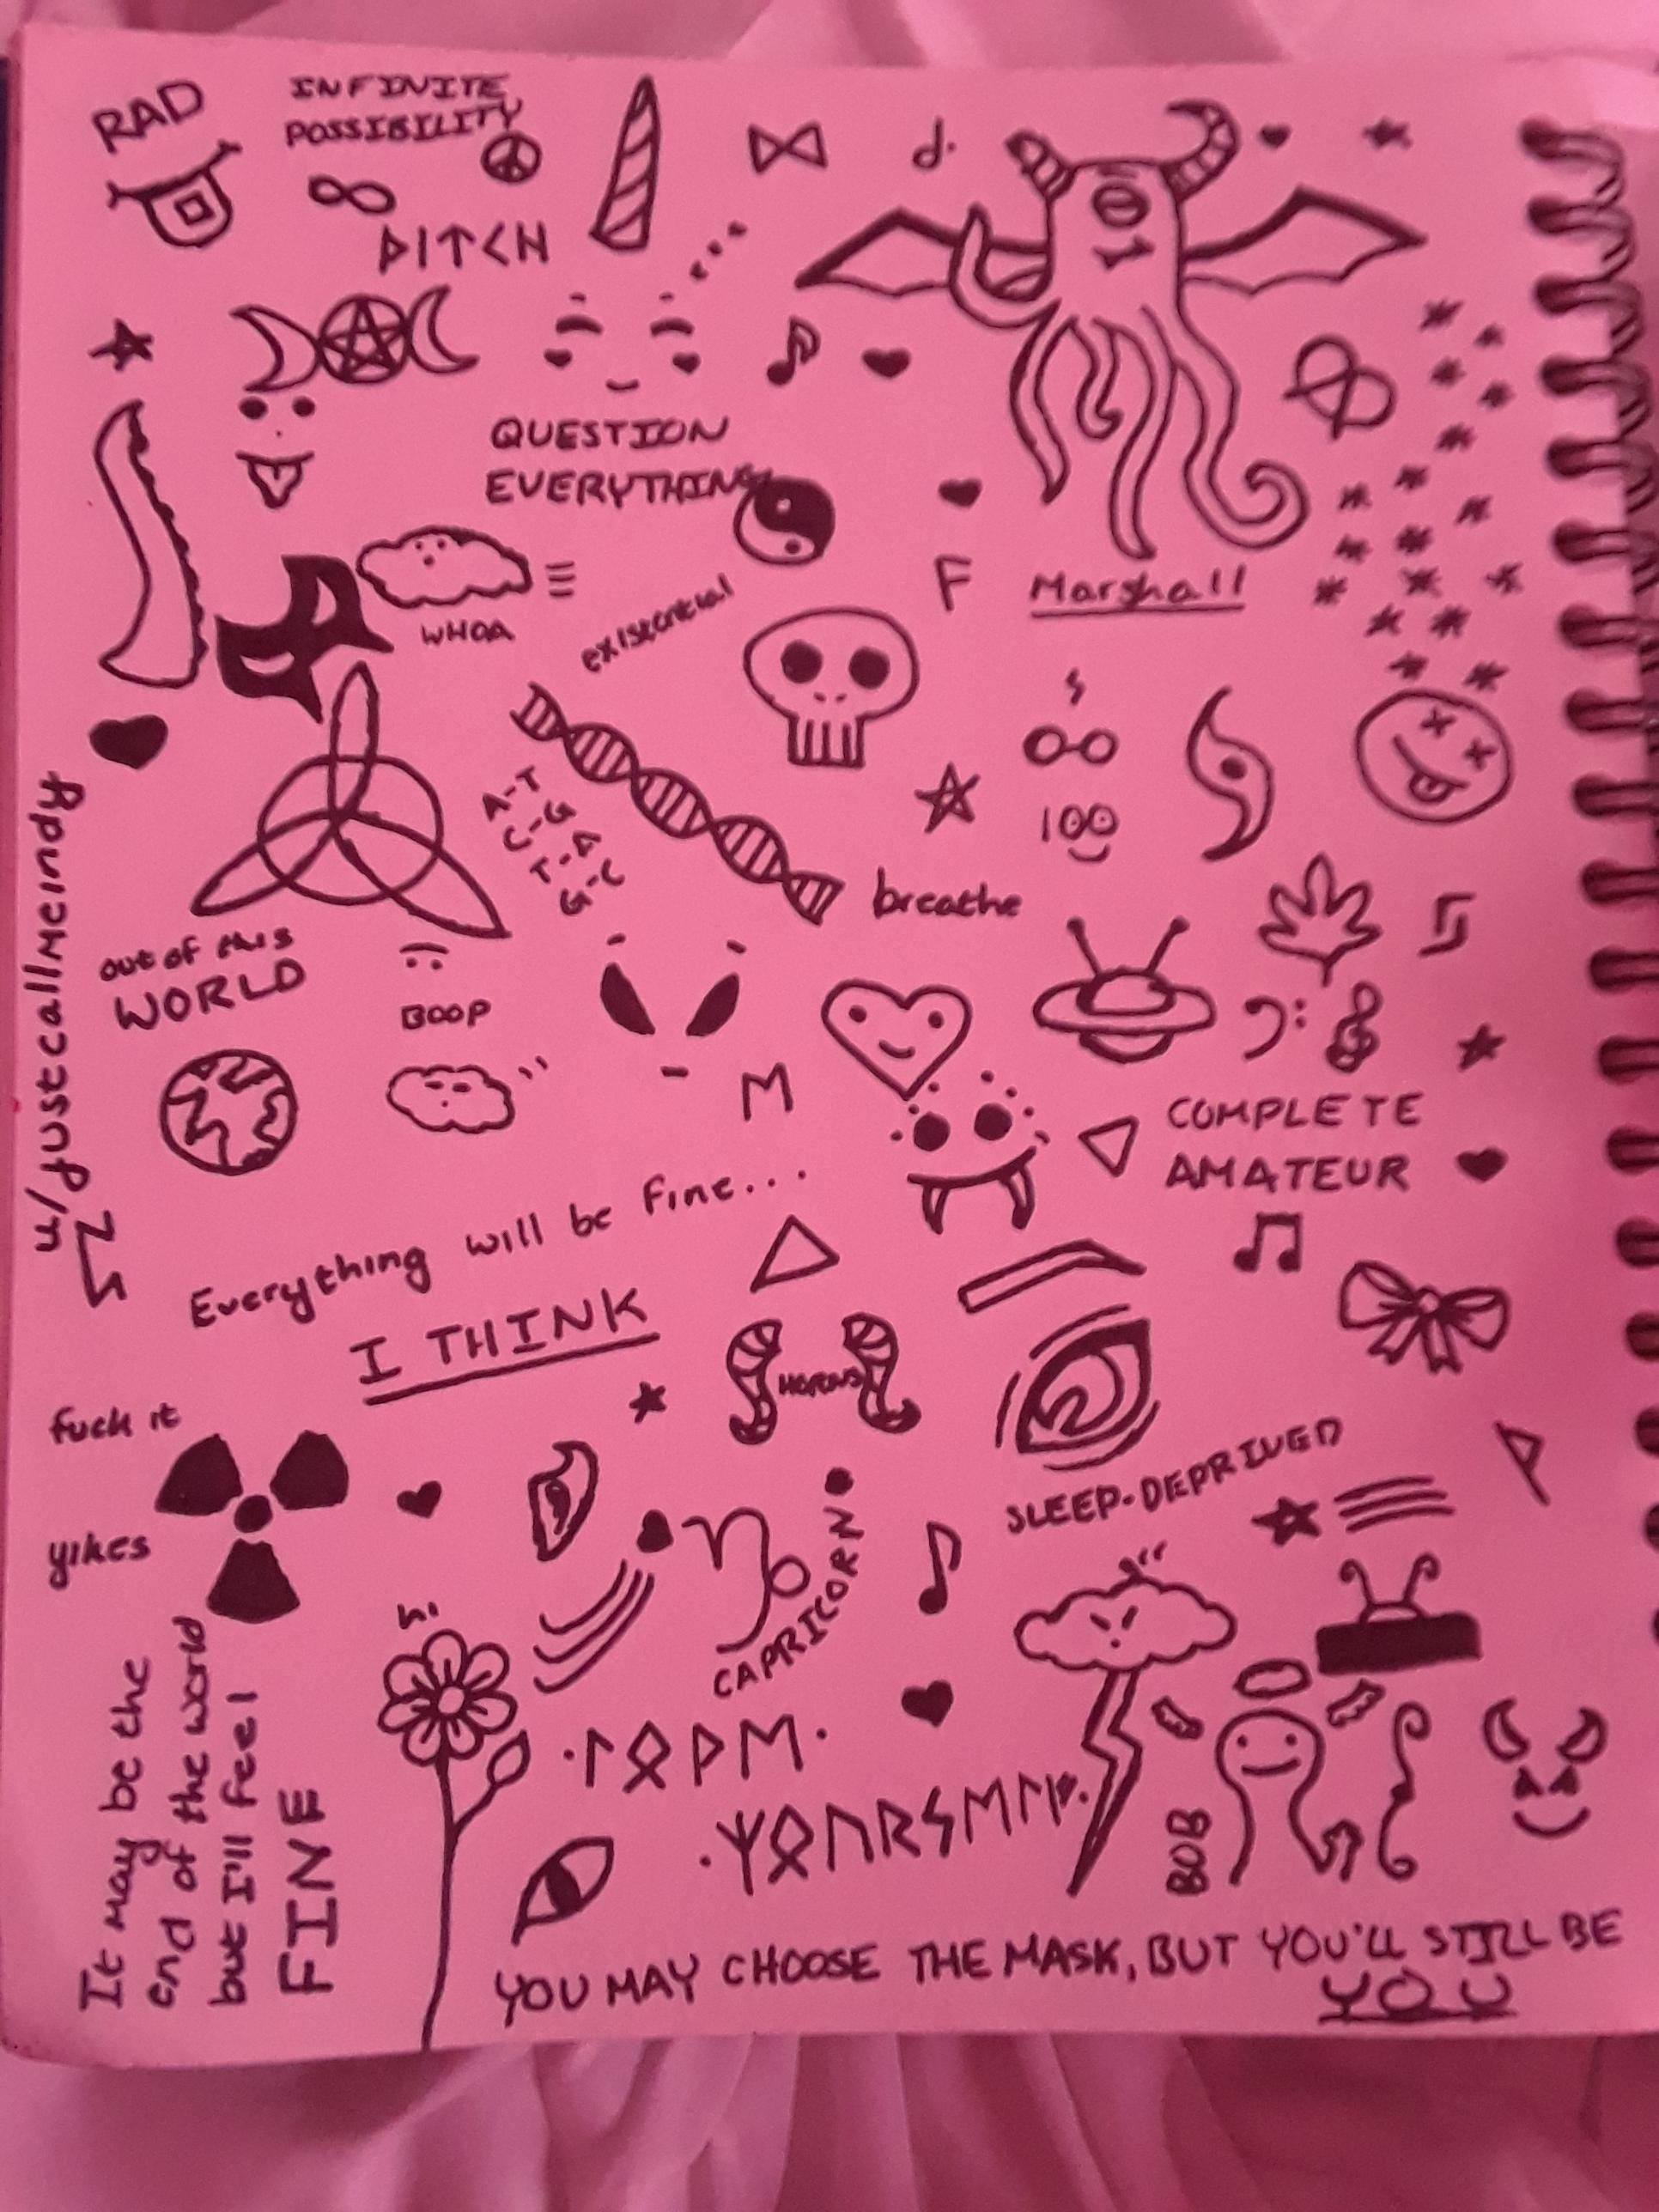 RAD
INFINITE
POSSIBILITY
ᚹᛁᛏᚲᚺ
QUESTION
EVERYTHING
WHOA
existential
F
Marshall
A-T
C-G
T-A
G-C
100
breathe
u/justcallmeindy
out of this
WORLD
BOOP
M
COMPLETE
AMATEUR
Everything will be fine...
I THINK
HORNS
fuck it
yikes
SLEEP-DEPRIVED
CAPRICORN
hi
It may be the
end of the world
but I'll feel
FINE
·ᛚᛟᚹᛖ·
·ᛉᛟᚢᚱᛋᛖᛚᚠ·
BOB
YOU MAY CHOOSE THE MASK, BUT YOU'LL STILL BE
YOU